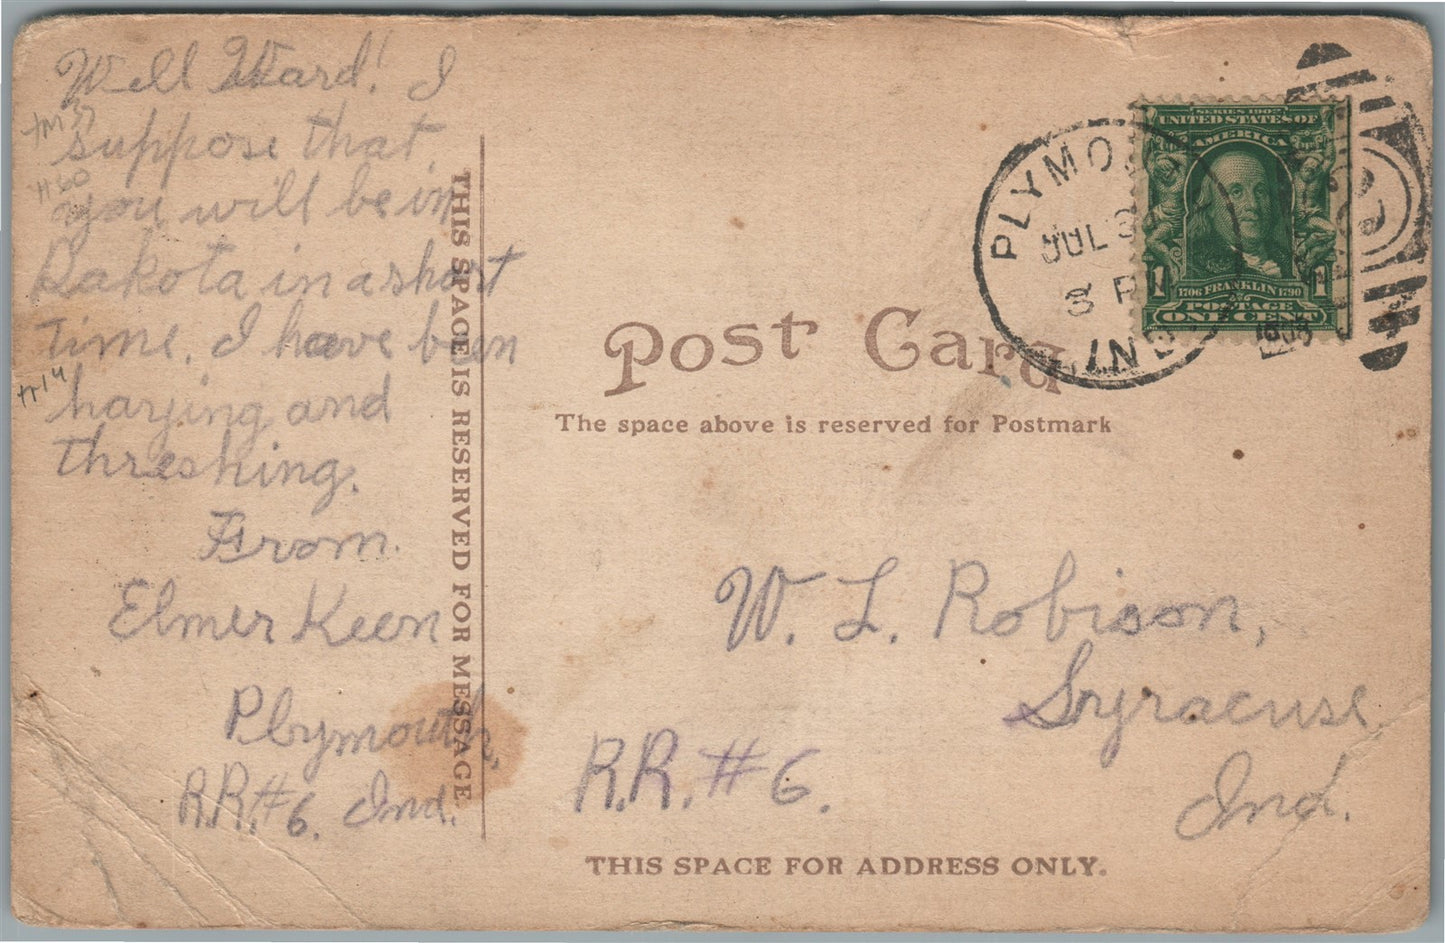 Well Ward! I
suppose that
you will be in
Dakota in a short
time. I have been
haying and
threshing.
From.
Elmer Keen
Plymouth,
R.R.#6. Ind.
#60
#14
THIS SPACE IS RESERVED FOR MESSAGE.
Post Card
The space above is reserved for Postmark
PLYMO
JUL
IND
SERIES 1902
UNITED STATES OF
AMERICA
1 1
1706 FRANKLIN 1790
POSTAGE
ONE CENT
1908
W. L. Robison,
Syracuse
R.R.#6.
Ind.
THIS SPACE FOR ADDRESS ONLY.